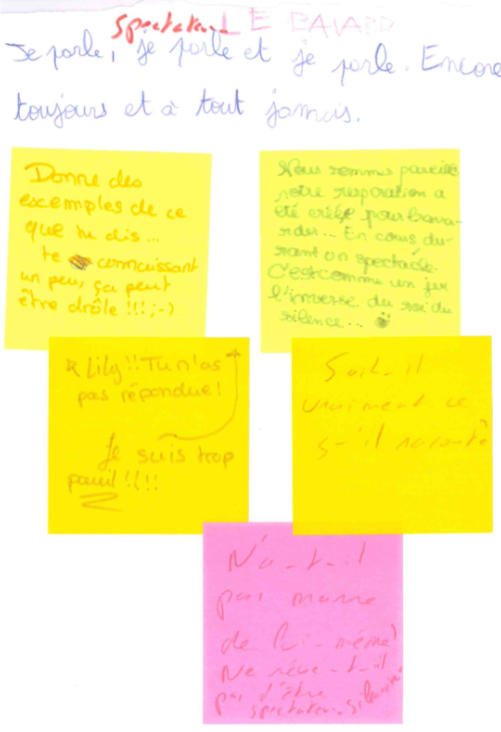 spectateur LE BAVARD
Je parle, je parle et je parle. Encore
toujours et à tout jamais.
Donne des
exemples de ce
que tu dis...
te connaissant
un peu, ça peut
être drôle !!! ;-)
Nous sommes pareille
notre respiration a
été créée pour bava-
rder... En cours du-
rant un spectacle.
C'est comme un jeu
l'inverse du roi du
silence...
Lily !! Tu n'as
pas répondue !
Je suis trop
pareil !!!!
Sait-il
vraiment ce
qu'il raconte
N'a-t-il
pas marre
de lui-même ?
Ne rêve-t-il
pas d'être
spectateur silencieux